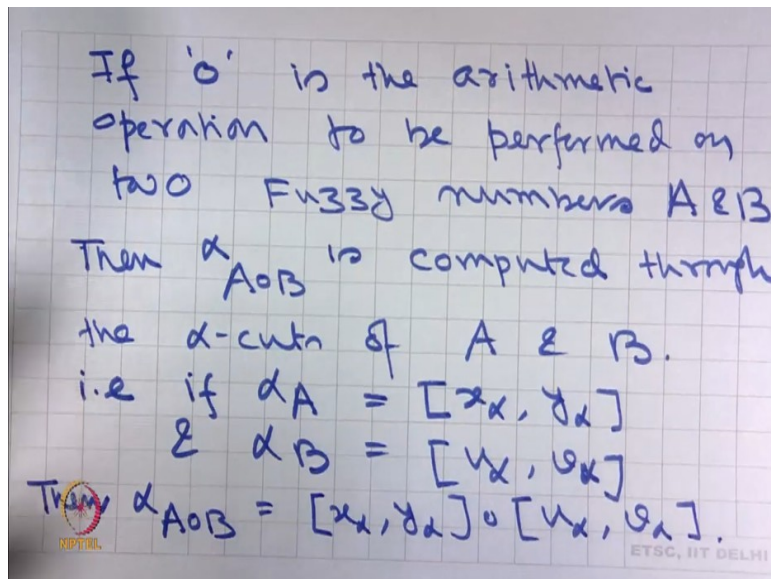 If 'o' is the arithmetic
operation to be performed on
two Fuzzy numbers A & B
Then α_{A∘B} is computed through
the α-cuts of A & B.
i.e if αA = [x_α, y_α]
& αB = [u_α, v_α]
Then α_{A∘B} = [x_α, y_α] ∘ [u_α, v_α].
NPTEL
ETSC, IIT DELHI